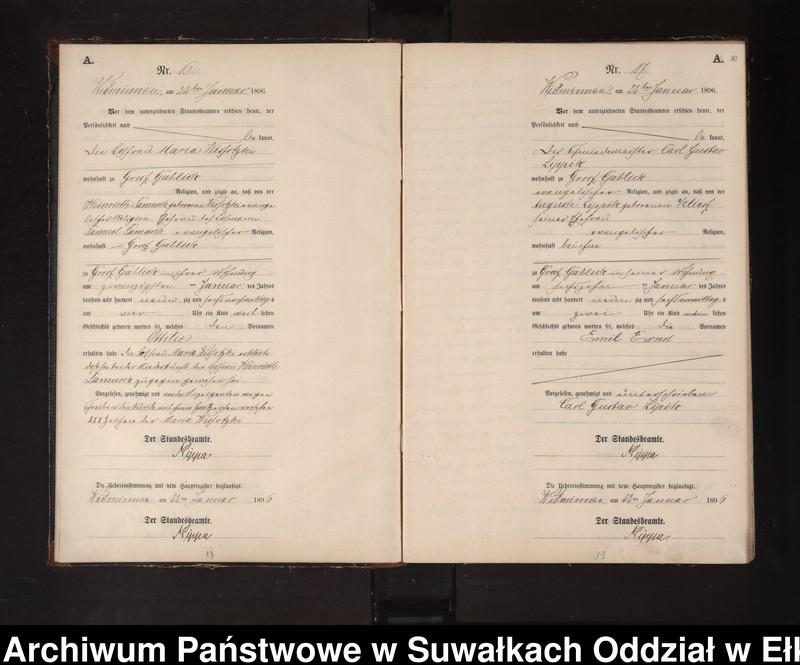 A.
Nr. 16.
Widminnen, am 22ten Januar 1896.
Vor dem unterzeichneten Standesbeamten erschien heute, der
Persönlichkeit nach
be kannt,
die Losfrau Maria
wohnhaft zu Groß Gablick
Religion, und zeigte an, daß von der
geborene
Religion, Ehefrau des
Samuel evangelischer Religion,
wohnhaft in Groß Gablick
zu Groß Gablick in ihrer Wohnung
am zwanzigsten ten Januar des Jahres
tausend acht hundert neun zig und sechs nachmittags
um vier Uhr ein Kind weib lichen
Geschlechts geboren worden sei, welches den Vornamen
Ottilie
erhalten habe. Die Losfrau Maria erklärte
daß sie bei der Niederkunft der Losfrau
zugegen gewesen sei.
Vorgelesen, genehmigt und von der wegen
XXX Zeichen der Maria
Der Standesbeamte.
Kippa
Die Uebereinstimmung mit dem Hauptregister beglaubigt.
Widminnen, am 22ten Januar 1896
Der Standesbeamte.
Kippa
18
A.
Nr. 17.
Widminnen, am 22ten Januar 1896.
Vor dem unterzeichneten Standesbeamten erschien heute, der
Persönlichkeit nach
be kannt,
der Schmiedemeister Carl Gustav
Lippik
wohnhaft zu Groß Gablick
evangelischer Religion, und zeigte an, daß von der
Auguste Lippik geborenen
seiner Ehefrau
evangelischer Religion,
wohnhaft bei ihm
zu Groß Gablick in seiner Wohnung
am sechszehn ten Januar des Jahres
tausend acht hundert neun zig und sechs vormittags
um zwei Uhr ein Kind männ lichen
Geschlechts geboren worden sei, welches die Vornamen
Emil Ernst
erhalten habe
Vorgelesen, genehmigt und unterschrieben
Carl Gustav Lipik
Der Standesbeamte.
Kippa
Die Uebereinstimmung mit dem Hauptregister beglaubigt.
Widminnen, am 22ten Januar 1896
Der Standesbeamte.
Kippa
19
Archiwum Państwowe w Suwałkach Oddział w Eł